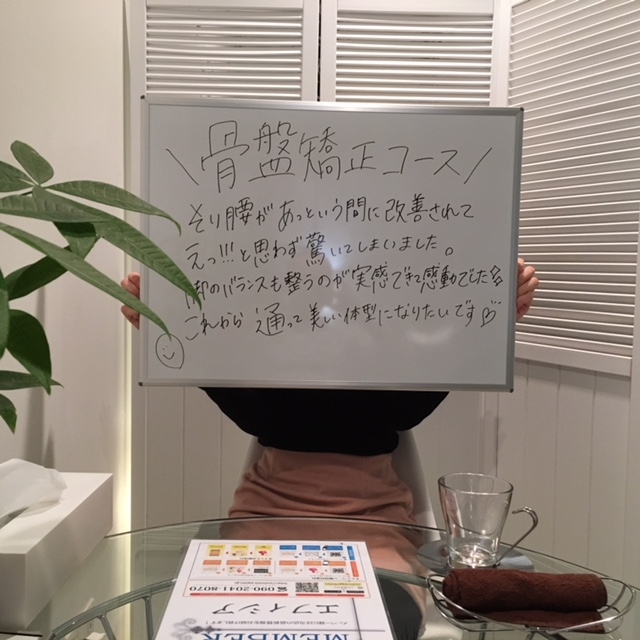 \骨盤矯正コース/
そり腰があっという間に改善されて
えっ!!!と思わず驚いてしまいました。
脚のバランスも整うのが実感できて感動でした
これから通って美しい体型になりたいです♡
090-2041-8070
エフィシア
MEMBER